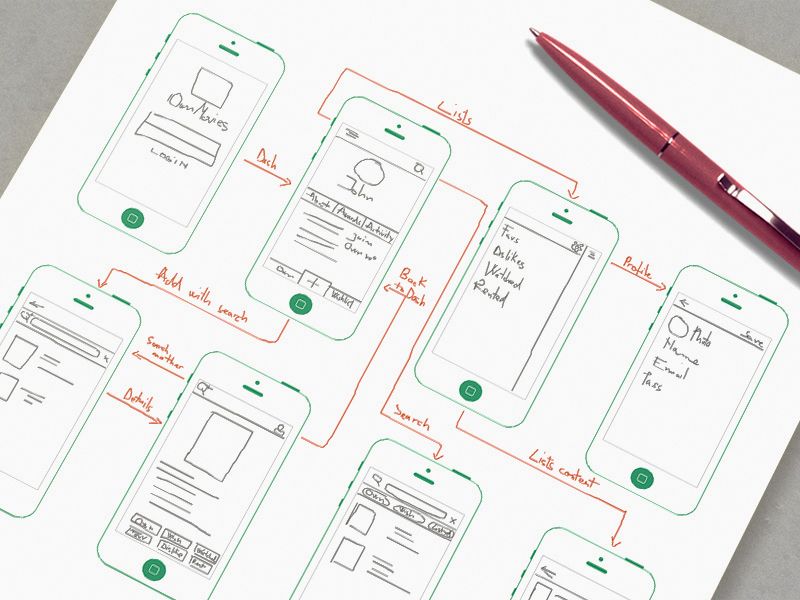 10wnMovies
LOGIN
Dash
Lists
John
About
Awards
Activity
Own
+
Wishlist
Favs
Dislikes
Watched
Rented
Profile
Photo
Save
Name
Email
Pass
Add with search
Back
to Dash
Search
another
Details
Own
Wish
Watched
Fav
Dislike
Rent
Search
Own
Wish
x
x
Lists content